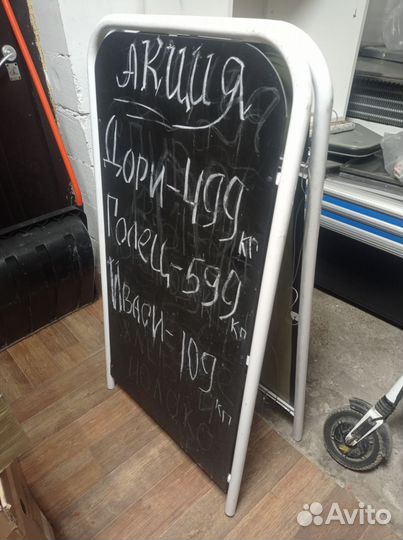 АКЦИЯ
Дори-499 кг
Голец-599 кг
Иваси-109 кг
Avito